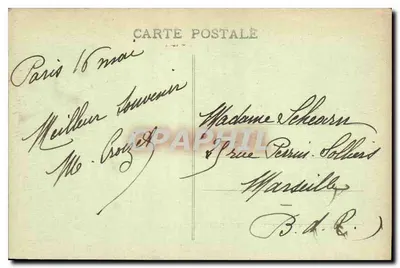 CARTE POSTALE
Paris 16 mai
Meilleur souvenir
M. Croizet
Madame Schearn
rue Perrin-Solliers
Marseille
B. d. R.
CPAPHIL